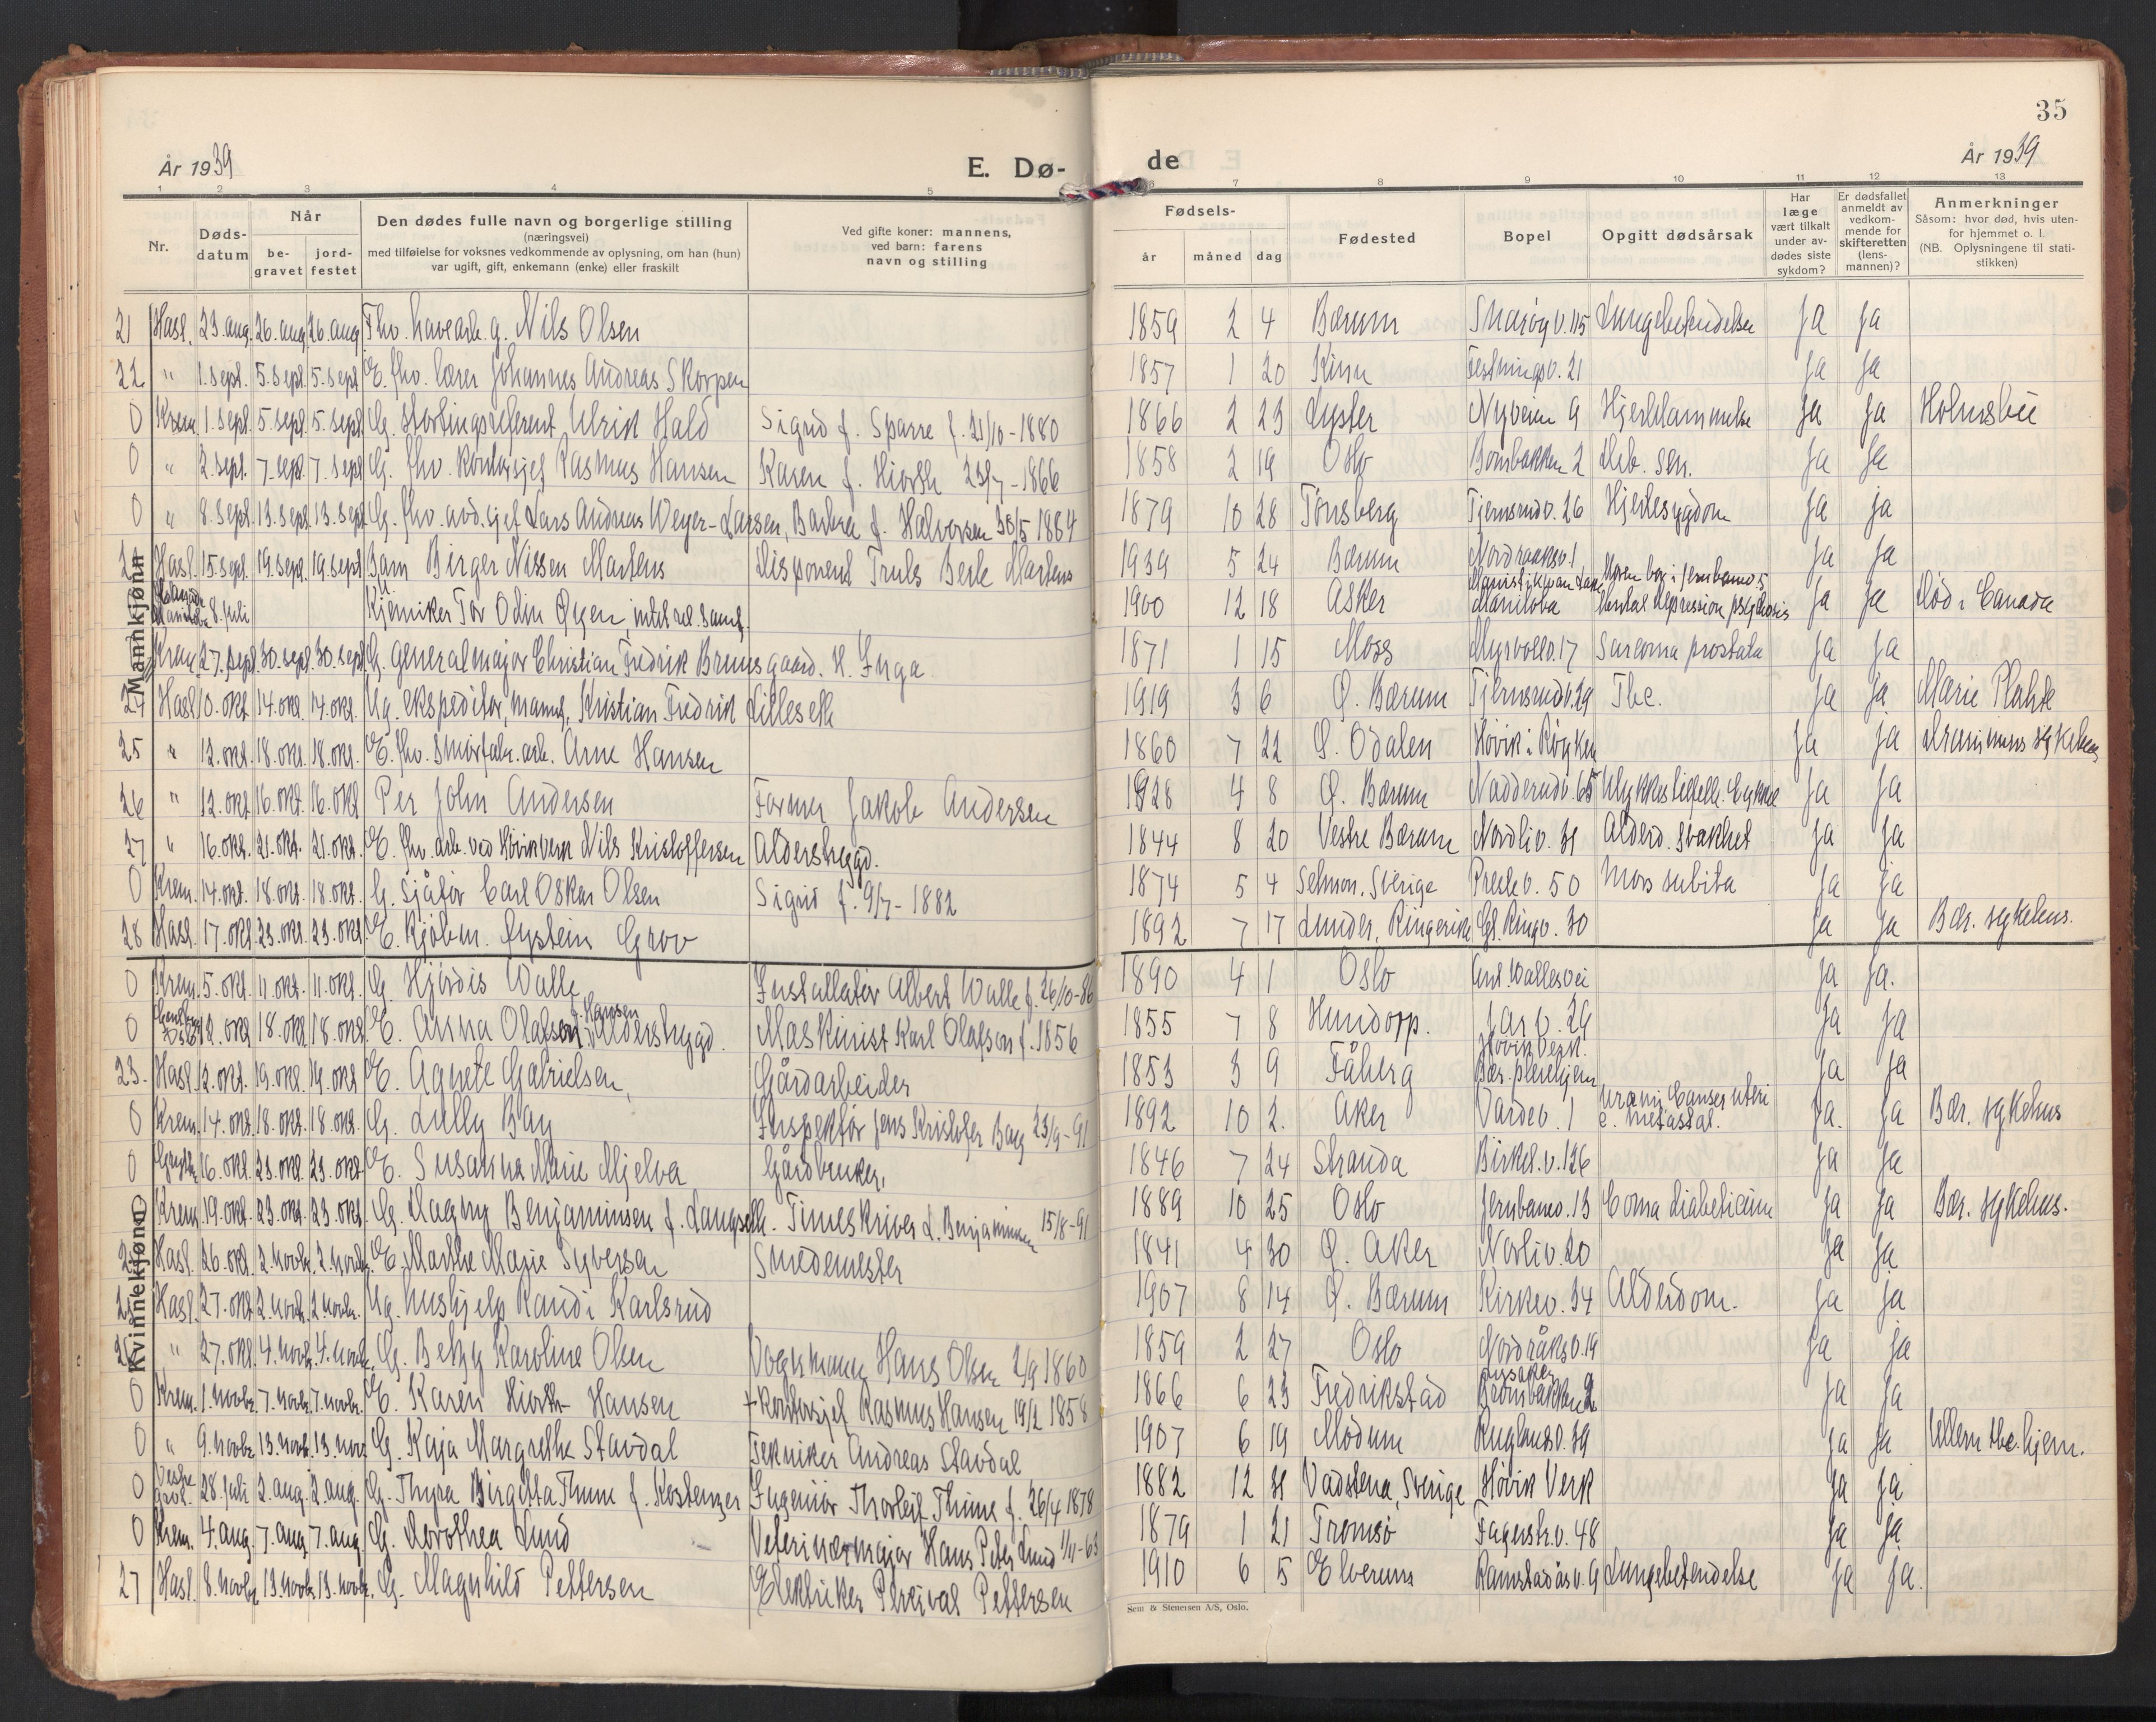 35
År 1939
E. Dø-
de
År 1939
1 2 3 4 5 6 7 8 9 10 11 12 13
Nr.
Døds-
datum
Når
be-
gravet
jord-
festet
Den dødes fulle navn og borgerlige stilling
(næringsvei)
med tilføielse for voksnes vedkommende av oplysning, om han (hun)
var ugift, gift, enkemann (enke) eller fraskilt
Ved gifte koner: mannens,
ved barn: farens
navn og stilling
Fødsels-
år måned dag
Fødested
Bopel
Opgitt dødsårsak
Har
læge
vært tilkalt
under av-
dødes siste
sykdom?
Er dødsfallet
anmeldt av
vedkom-
mende for
skifteretten
(lens-
mannen)?
Anmerkninger
Såsom: hvor død, hvis uten-
for hjemmet o. l.
(NB. Oplysningene til stati-
stikken)
Mannkjønn
21 Hasl. 23. aug. 26. aug. 26. aug. Fhv. havearb. g. Nils Olsen 1859 2 4 Bærum Snarøyv. 115 Lungebetendelse Ja Ja
22 " 1. sept. 5. sept. 5. sept. E. fhv. lærer Johannes Andreas Skorpen 1857 1 20 Kinn Festningsv. 21 Ja Ja
0 Krem. 1. sept. 5. sept. 5. sept. G. stortingsreferent Ulrik Hald Sigrid f. Sparre f. 21/10-1880 1866 2 23 Lyster Nyveien 9 Hjertelammelse Ja Ja Holmsbu
0 " 2. sept. 7. sept. 7. sept. G. fhv. kontorsjef Rasmus Hansen Karen f. Hiorth 23/7-1866 1858 2 19 Oslo 2 sen. Ja Ja
0 " 8. sept. 13. sept. 13. sept. G. fhv. avd.sjef Lars Andreas Weyer-Larsen, Barbra f. Halvorsen 30/5 1884 1879 10 28 Tønsberg Tjernsrudv. 26 Hjertesygdom Ja Ja
Hasl. 15. sept. 19. sept. 19. sept. Barn Birger Nissen Martens Disponent Truls Berle Martens 1939 5 24 Bærum Nordraaksv. 1 Ja Ja
8. juli Kjemiker Tor Odin Øyen, 1900 12 18 Asker Manitoba Mental depression psychosis Ja Ja Død i Canada
Krem. 27. sept. 30. sept. 30. sept. G. generalmajor Christian Fredrik Brunsgaard. H. Inga 1871 1 15 Moss Myrvollv. 17 Sarcoma prostata Ja Ja
24 Hasl. 10. okt. 14. okt. 14. okt. Ug. ekspeditør, Kristian Fredrik Lilleseth 1919 3 6 Ø. Bærum Tjernsrudv. 39 Tbc. Ja Ja Marie Plahte
25 " 12. okt. 18. okt. 18. okt. E. fhv. smørfabr. arb. Arne Hansen 1860 7 22 S. Odalen Høvik i Røyken Ja Ja Drammens sykehus
26 " 12. okt. 16. okt. 16. okt. Per John Andersen Former Jakob Andersen 1928 4 8 Ø. Bærum Nadderudv. 65 Ulykkestilfelle. Cykkel Ja Ja
27 " 16. okt. 21. okt. 21. okt. E. fhv. arb. ved Høvik verk Nils Kristoffersen Alderstrygd. 1844 8 20 Vestre Bærum Nordliv. 31 Alderd. svakhet Ja Ja
0 Krem. 14. okt. 18. okt. 18. okt. G. sjåfør Carl Oskar Olsen Sigrid f. 9/7-1882 1874 5 4 Sverige Prestev. 50 Mors subita Ja Ja
28 Hasl. 17. okt. 23. okt. 23. okt. E. kjøbm. Eystein Grov 1892 7 17 Lunder, Ringerike Gl. Ringv. 30 Ja Ja Bær. sykehus.
Kvinnekjønn
0 Krem. 5. okt. 11. okt. 11. okt. G. Hjørdis Walle Installatør Albert Walle f. 26/10-86 1890 4 1 Oslo Ant. Wallesvei Ja Ja.
0 12. okt. 18. okt. 18. okt. E. Anna Olafsen f. Hansen, Alderstrygd. Maskinist Karl Olafsen f. 1856 1855 7 8 Hundorp. Jarv. 29 Ja Ja
23. Hasl. 12. okt. 19. okt. 19. okt. E. Agnete Gabrielsen, Gårdarbeider 1853 3 9 Fåberg Høvik Verk. Bær. pleiehjem Ja Ja
0 Krem. 14. okt. 18. okt. 18. okt. G. Lully Bay Inspektør Jens Kristofer Bay 23/9-91 1892 10 2. Aker Vardev. 1 Uræmi Canser uteri c. metastat. Ja. Ja Bær. sykehus
0 16. okt. 23. okt. 23. okt. E. Susanna Marie Mjelva Gårdbruker, 1846 7 24 Stranda Birkel.v. 126 Ja Ja
0 Krem. 19. okt. 23. okt. 23. okt. G. Dagny Benjaminsen f. Langseth. Timeskriver L. Benjaminsen 15/8-91 1889 10 25 Oslo Jernbanev. 13 Coma diabeticum Ja Ja Bær. sykehus.
Hasl. 26. okt. 2. novbr. 2. novbr. E. Marthe Marie Syversen Smedemester 1841 4 30 Ø. Aker Norliv. 20 Ja Ja
Hasl. 27. okt. 2. novbr. 2. novbr. Ug. hushjelp Randi Karlsrud 1907 8 14 Ø. Bærum Kirkev. 34 Alderdom. Ja Ja
" 27. okt. 4. novbr. 4. novbr. G. Betzy Karoline Olsen Vognmann Hans Olsen 2/9 1860 1859 2 27 Oslo Nordråksv. 19 Ja Ja
0 Krem. 1. novbr. 7. novbr. 7. novbr. E. Karen Hiorth Hansen + Kontorsjef Rasmus Hansen 19/2 1858 1866 6 23 Fredrikstad Lysaker Ja Ja
0 " 9. novbr. 13. novbr. 13. nov. G. Kaja Margrethe Stavdal Tekniker Andreas Stavdal 1907 6 19 Modum Ruglandsv. 39 Ja Ja Ullern tbc. hjem.
0 Vestre grav. 28. juli 2. aug. 2. aug. G. Thyra Birgitta Thime f. Ingeniør Thorleif Thime f. 26/4 1878 1882 12 31 Vadstena, Sverige Høvik Verk Ja Ja
0 Krem. 4. aug. 7. aug. 7. aug. G. Dorothea Lund Veterinærmajor Hans Peter Lund 1/11-63 1879 1 21 Tromsø Fagerstr.v. 48 Ja Ja
27 Hasl. 8. novbr. 13. novbr. 13. novbr. G. Magnhild Pettersen Elektriker Percival Pettersen 1910 6 5 Elverum Ramstadåsv. 9 Lungebetendelse Ja Ja.
Sem & Stenersen A/S, Oslo.